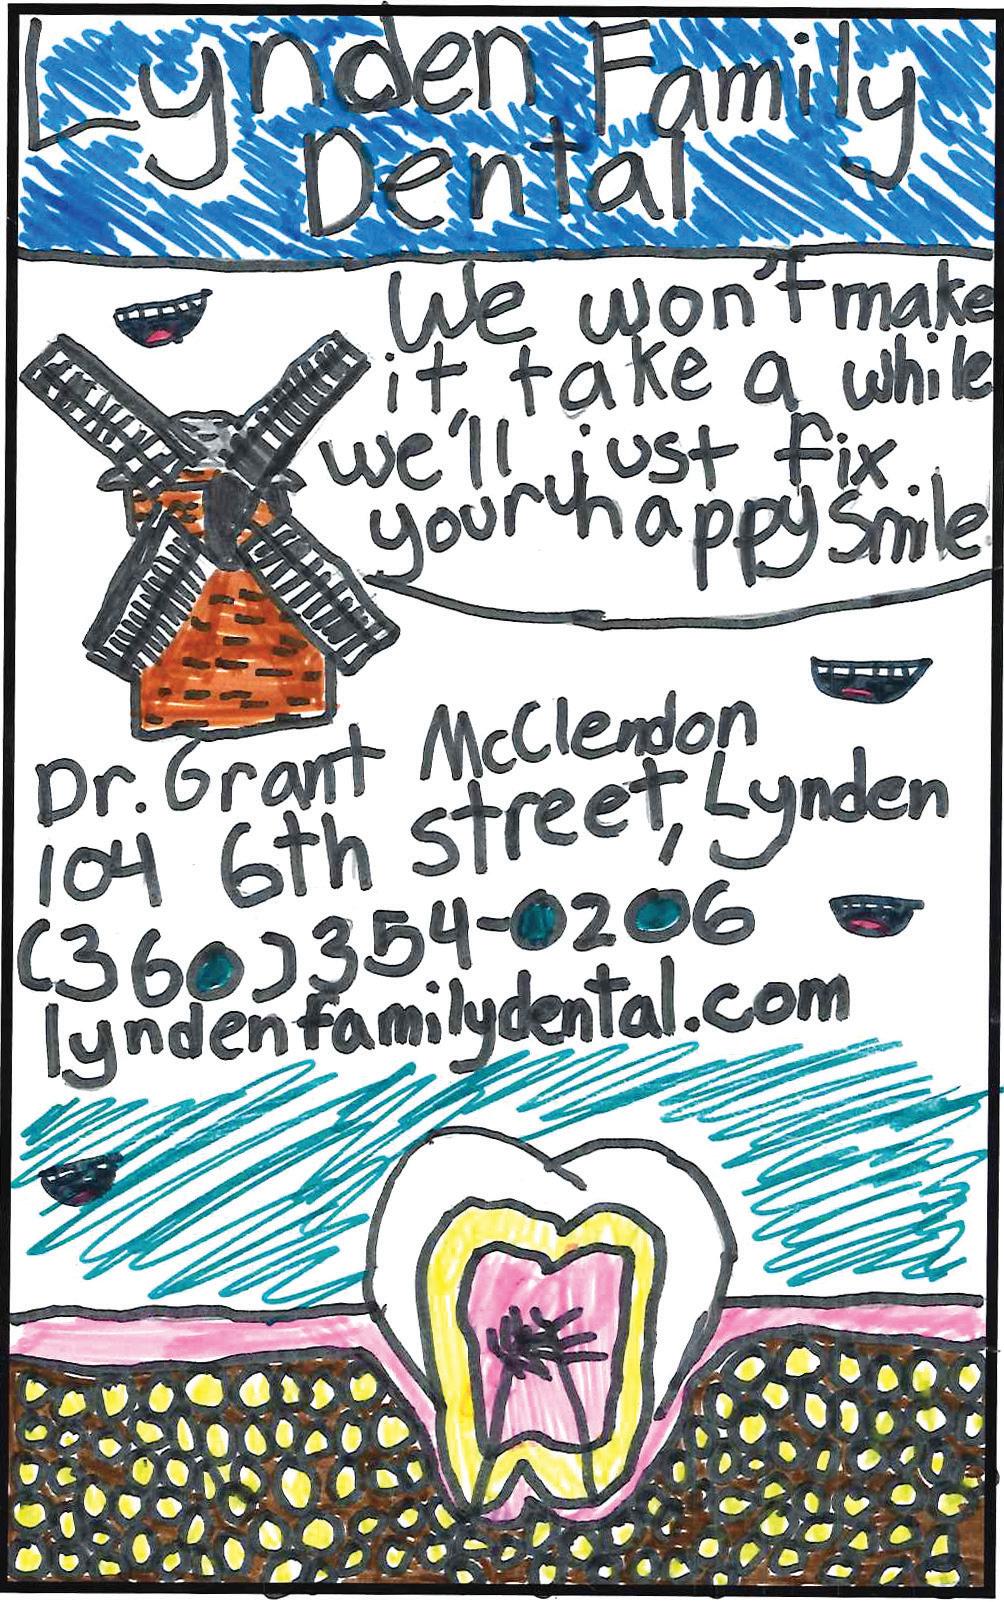 Lynden Family
Dental
We won't make
it take a while
we'll just fix
your happy smile
Dr. Grant McClendon
104 6th street, Lynden
(360)354-0206
lyndenfamilydental.com